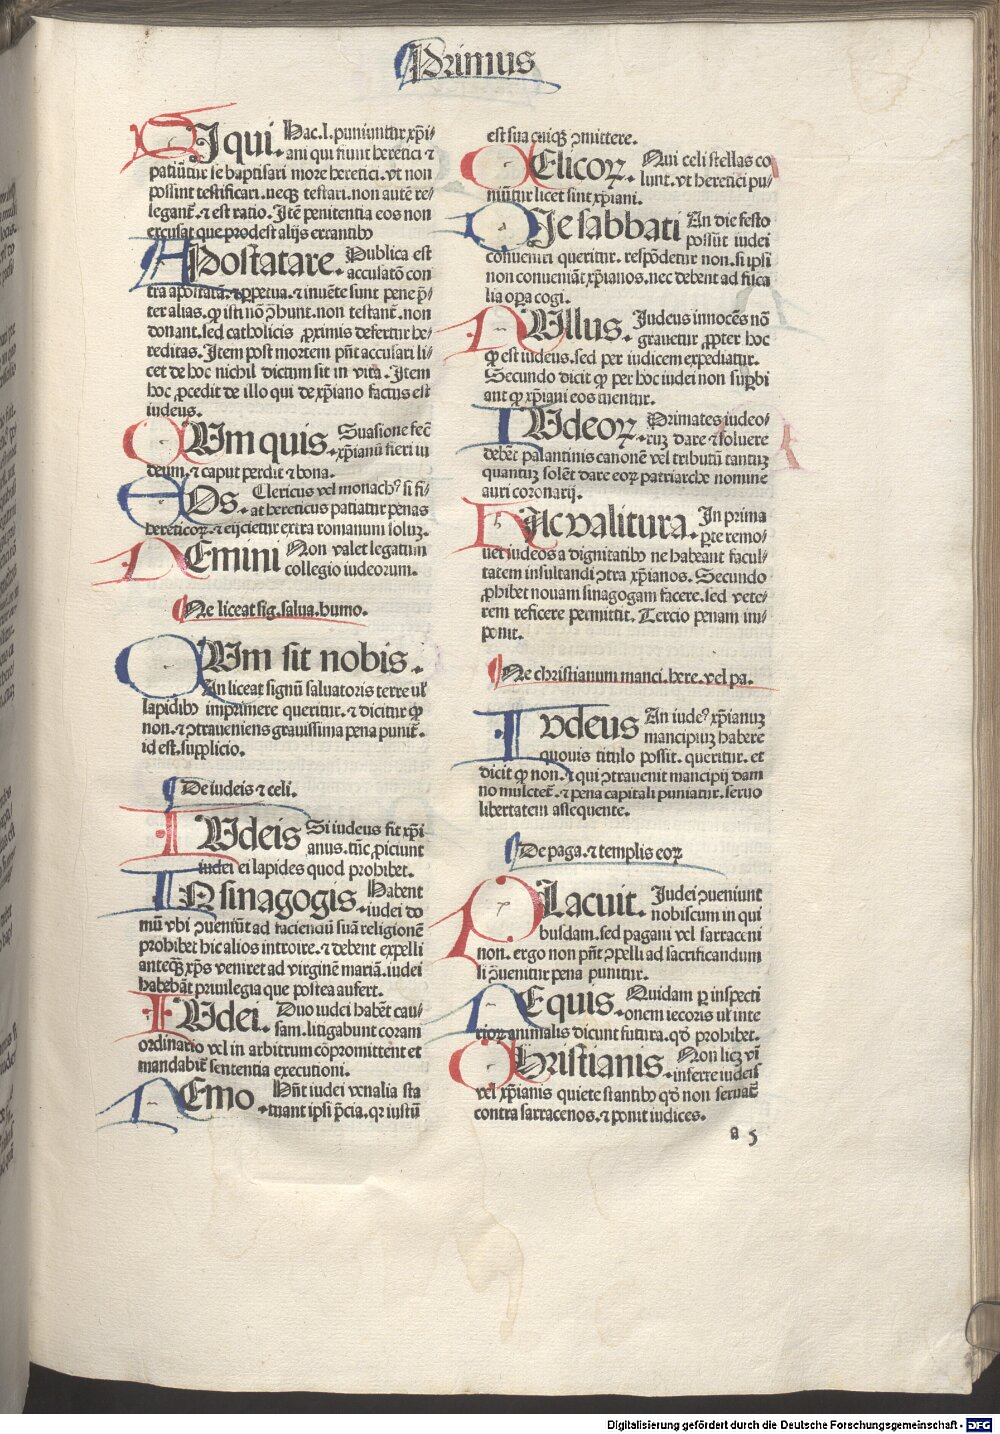 Primus
SI qui. Hac.l.puniuntur xp̄i⸗
ani qui fiunt heretici ⁊
patiūtur se baptisari more heretici.vt non
possint testificari.neqꝫ testari.non autē re⸗
legant̄.⁊ est ratio.Itē penitentia eos non
excusat que prodest alijs errantibꝰ
APostatare. Publica est
accusatō con
tra apostatā.⁊ ꝑpetua.⁊ inuēte sunt pene p̄⸗
ter alias.ꝙ isti nō ꝓhbunt.non testant̄.non
donant.sed catholicis ꝓximus defertur he⸗
reditas.Item post mortem pn̄t accusari li⸗
cet de hoc nichil dictum sit in vita.Item
hoc ꝓcedit de illo qui de xp̄iano factus est
iudeus.
QUm quis. Suasione fec̄
xp̄ianū fieri iu
deum.⁊ caput perdit ⁊ bona.
EOs. Clericus vel monachꝰ si fi⸗
at hereticus patiatur penas
hereticoꝝ.⁊ eijcietur extra romanum soluꝫ.
NEmini Non valet legatum
collegio iudeorum.
¶Ne liceat sig.salua.humo.
QUm sit nobis.
An liceat signū saluatoris terre vl̓
lapidibꝰ imprimere queritur.⁊ dicitur ꝙ
non.⁊ ꝯtraueniens grauissima pena punit̄.
id est.supplicio.
¶De iudeis ⁊ celi.
IUdeis Si iudeus fit xp̄i
anus.tūc ꝓiciunt
iudei ei lapides quod prohibet.
IN sinagogis. Habent
iudei do
mū vbi ꝯueniūt ad faciendū suā religionē
prohibet hic alios introire.⁊ debent expelli
anteqꝫ xp̄s veniret ad virginē mariā.iudei
habebāt priuilegia que postea aufert.
IUdei. Duo iudei habēt cau⸗
sam.litigabunt coram
ordinario vel in arbitrum cōpromittent et
mandabit̄ sententia executioni.
NEmo. Pn̄t iudei venalia sta
tuant ipsi p̄cia.qꝛ iustū
est sua cuiqꝫ ꝯmittere.
CElicoꝝ. Qui celi stellas co
lunt.vt heretici pu⸗
niūtur licet sint xp̄iani.
DIe sabbati An die festo
possūt iudei
conueniri queritur.respōdetur non.si ipsi
non conueniāt xp̄ianos.nec debent ad fisca
lia oꝑa cogi.
NUllus. Iudeus innocēs nō
grauetur ꝓpter hoc
ꝙ est iudeus.sed per iudicem expediatur.
Secundo dicit ꝙ per hoc iudei non suꝑbi
ant ꝙ xp̄iani eos tuentur.
IUdeoꝝ. Primates iudeo⸗
ruꝫ dare ⁊ soluere
debēt palantinis canonē vel tributū tantuꝫ
quantuꝫ solēt dare eoꝝ patriarche nomine
auri coronarij.
HAc valitura. In prima
ꝑte remo⸗
uet iudeos a dignitatibꝰ ne habeant facul⸗
tatem insultandi ꝯtra xp̄ianos.Secundo
ꝓhibet nouam sinagogam facere.sed vete⸗
rem reficere permittit.Tercio penam im⸗
ponit.
¶Ne christianum manci.here.vel pa.
IVdeus An iudeꝰ xp̄ianuꝫ
mancipiuꝫ habere
quouis titulo possit.queritur.et
dicit ꝙ non.⁊ qui ꝯtrauenit mancipij dam
no mulctet̄.⁊ pena capitali puniatur.seruo
libertatem assequente.
¶De paga.⁊ templis eoꝝ
PLacuit. Iudei ꝯueniunt
nobiscum in qui
busdam.sed pagani vel sarraceni
non.ergo non pn̄t ꝯpelli ad sacrificandum
si ꝯuenitur pena punitur.
NEquis. Quidam ꝑ inspecti
onem iecoris vl̓ inte
rioꝝ animalis dicunt futura.qd̓ prohibet.
CHristianis. Non licꝫ vī
inferre iudeis
vel xp̄ianis quiete stantibꝰ qd̓ non seruat̄
contra sarracenos.⁊ ponit iudices.
a 5
Digitalisierung gefördert durch die Deutsche Forschungsgemeinschaft - DFG